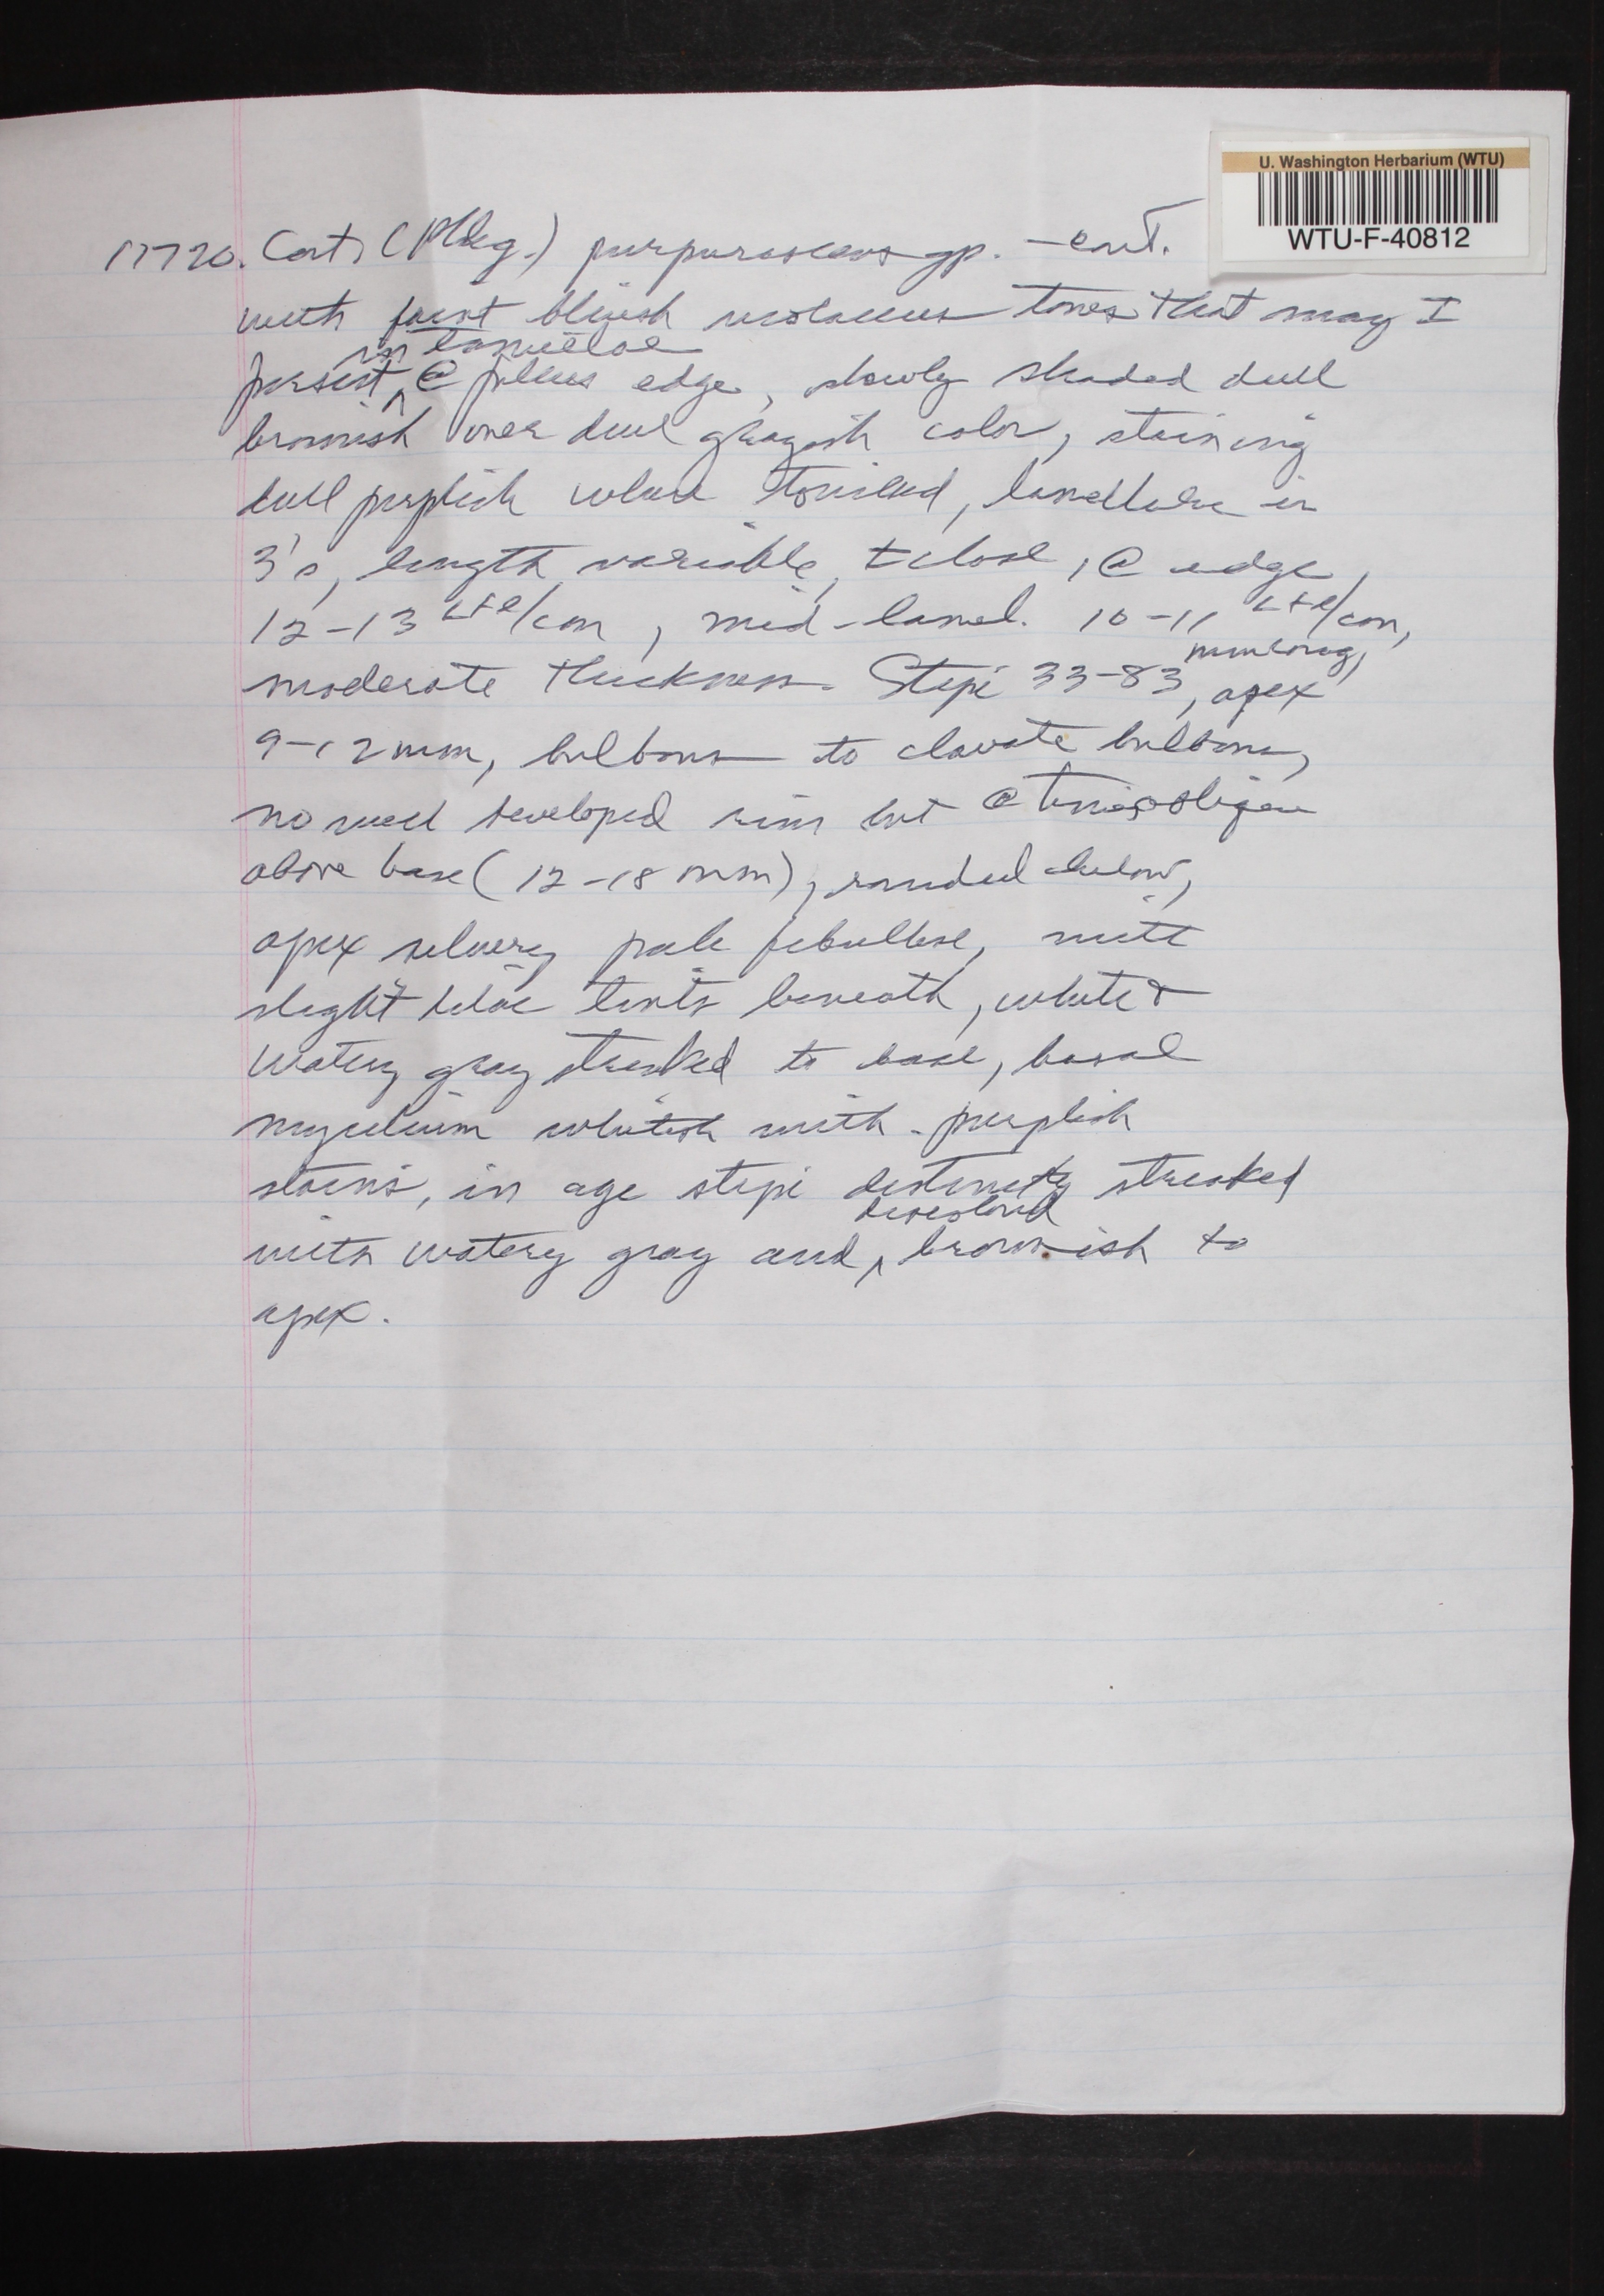 U. Washington Herbarium (WTU)
WTU-F-40812
17720. Cort. (Phleg.) purpurascens gp. - cont.
with faint bluish violaceus tones that may ±
in lamellae
persist ^ @ pileus edge, slowly shaded dull
brownish over dull grayish color, staining
dull purplish where bruised, lamellulae in
3's, length variable, ± close, @ edge,
12-13 L+l/cm, mid-lamel. 10-11 L+l/cm,
mm long,
moderate thickness. Stipe 33-83, apex
9-12 mm, bulbous to clavate bulbous,
no well developed rim but @ times
above base (12-18 mm), rounded below,
apex silvery pale, with
slight lilac tints beneath, white &
watery gray streaked to base, basal
mycelium whitish with purplish
stains, in age stipe distinctly streaked
with watery gray and ^ brownish to
apex.